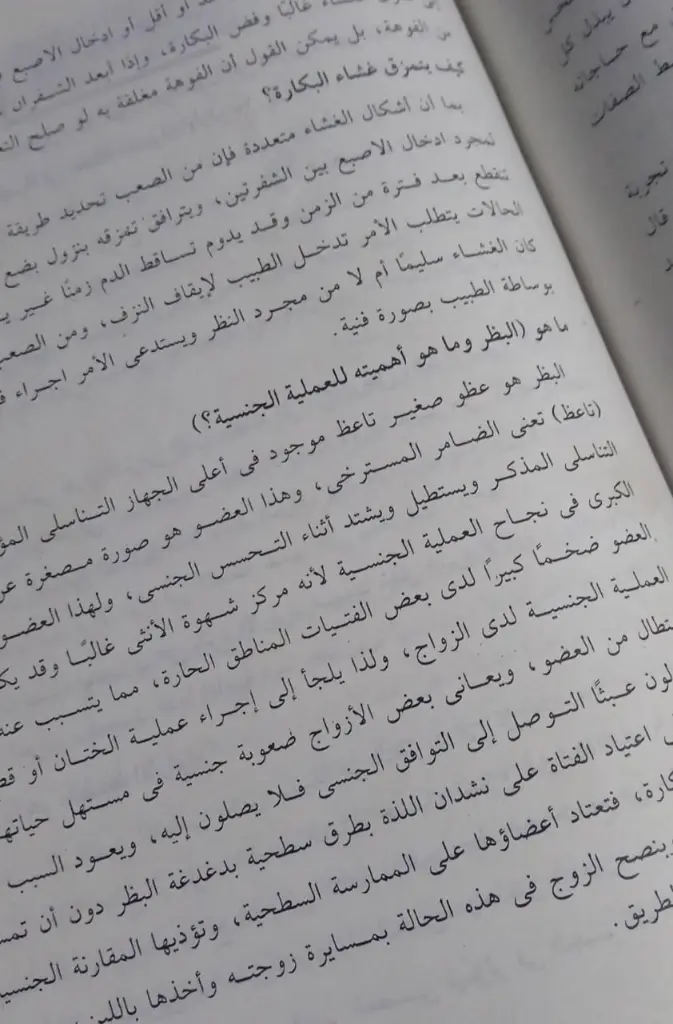 أو أقل أو ادخال الاصبع
غالبًا وفض البكارة، وإذا أبعد الشفران
من الفوهة، بل يمكن القول أن الفوهة مغلقة به لو صلح
كيف يتمزق غشاء البكارة؟
بما أن أشكال الغشاء متعددة فإن من الصعب تحديد طريقة
لمجرد ادخال الاصبع بين الشفرتين، ويترافق تمزقه بنزول بضع
تنقطع بعد فترة من الزمن وقد يدوم تساقط الدم زمنًا غير
الحالات يتطلب الأمر تدخل الطبيب لإيقاف النزف، ومن الصعب
كان الغشاء سليمًا أم لا من مجرد النظر ويستدعى الأمر اجراء
بوساطة الطبيب بصورة فنية.
ما هو (البظر وما هو أهميته للعملية الجنسية؟)
البظر هو عظو صغير تاعظ موجود فى أعلى الجهاز التناسلى
(تاعظ) تعنى الضامر المسترخى، وهذا العضو هو صورة مصغرة
التناسلى المذكر ويستطيل ويشتد أثناء التحسس الجنسى، ولهذا العضو
الكبرى فى نجاح العملية الجنسية لأنه مركز شهوة الأنثى غالبًا وقد
العضو ضخمًا كبيرًا لدى بعض الفتيات المناطق الحارة، مما يتسبب عنه
العملية الجنسية لدى الزواج، ولذا يلجأ إلى إجراء عملية الختان أو
من العضو، ويعانى بعض الأزواج ضعوبة جنسية فى مستهل
عبثًا التوصل إلى التوافق الجنسى فلا يصلون إليه، ويعود السبب
اعتياد الفتاة على نشدان اللذة بطرق سطحية بدغدغة البظر دون أن
فتعتاد أعضاؤها على الممارسة السطحية، وتؤذيها المقارنة
وينصح الزوج فى هذه الحالة بمسايرة زوجته وأخذها
يبذل كل
مع حاجاته
الصفات
تجربة
قال